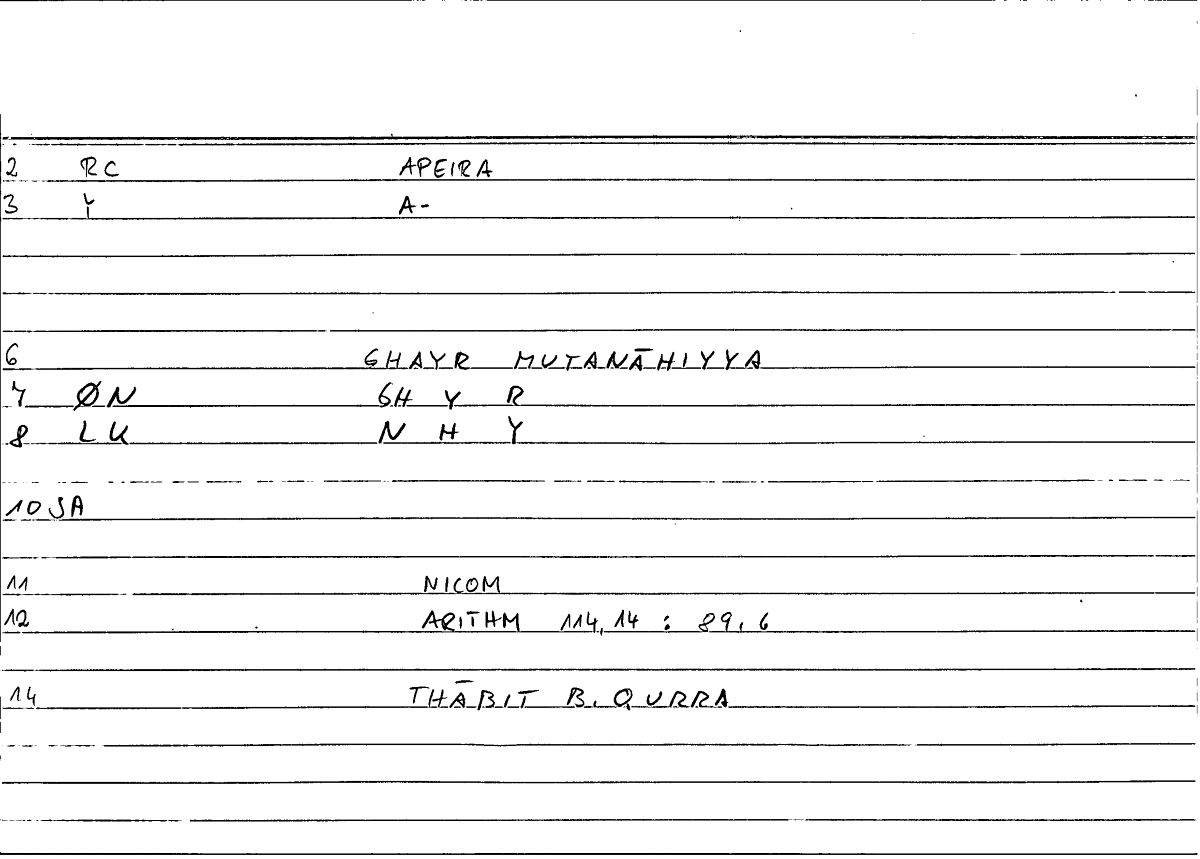 2 RC APEIRA
3 Y A-
6 GHAYR MUTANĀHIYYA
7 ØN GH Y R
8 LK N H Y
10 JA
11 NICOM
12 ARITHM 114,14 : 89,6
14 THĀBIT B. QURRA